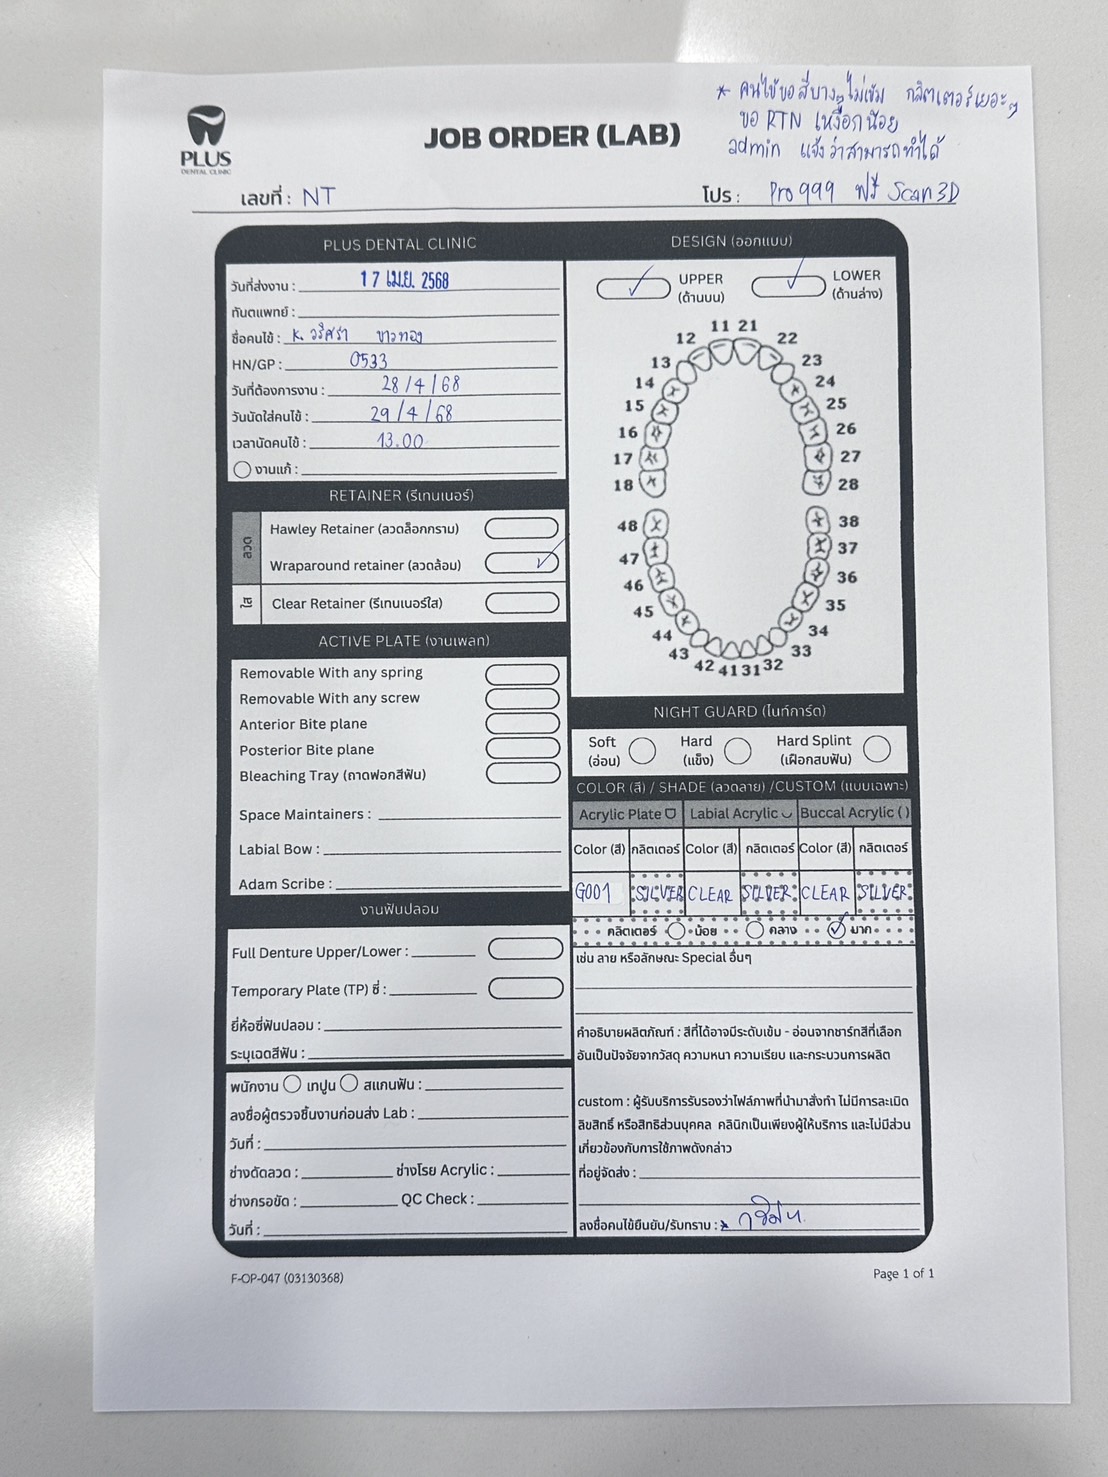 * คนไข้ขอสีบางๆ ไม่เข้ม กลิตเตอร์เยอะๆ
ขอ RTN เหงือกน้อย
admin แจ้งว่าสามารถทำได้
PLUS
DENTAL CLINIC
JOB ORDER (LAB)
เลขที่ : NT
โปร : Pro 999 ฟรี Scan 3D
PLUS DENTAL CLINIC
วันที่ส่งงาน : 17 เม.ย. 2568
ทันตแพทย์ :
ชื่อคนไข้ : K. วริศรา ขาวทอง
HN/GP : 0533
วันที่ต้องการงาน : 28/4/68
วันนัดใส่คนไข้ : 29/4/68
เวลานัดคนไข้ : 13.00
งานแก้ :
RETAINER (รีเทนเนอร์)
ลวด
Hawley Retainer (ลวดล็อกกราม)
Wraparound retainer (ลวดล้อม)
ใส
Clear Retainer (รีเทนเนอร์ใส)
ACTIVE PLATE (งานเพลท)
Removable With any spring
Removable With any screw
Anterior Bite plane
Posterior Bite plane
Bleaching Tray (ถาดฟอกสีฟัน)
Space Maintainers :
Labial Bow :
Adam Scribe :
งานฟันปลอม
Full Denture Upper/Lower :
Temporary Plate (TP) ซี่ :
ยี่ห้อซี่ฟันปลอม :
ระบุเฉดสีฟัน :
พนักงาน เทปูน สแกนฟัน :
ลงชื่อผู้ตรวจชิ้นงานก่อนส่ง Lab :
วันที่ :
ช่างดัดลวด : ช่างโรย Acrylic :
ช่างกรอขัด : QC Check :
วันที่ :
DESIGN (ออกแบบ)
UPPER (ด้านบน)
LOWER (ด้านล่าง)
11 21
12 22
13 23
14 24
15 25
16 26
17 27
18 28
48 38
47 37
46 36
45 35
44 34
43 33
42 41 31 32
NIGHT GUARD (ไนท์การ์ด)
Soft (อ่อน)
Hard (แข็ง)
Hard Splint (เฝือกสบฟัน)
COLOR (สี) / SHADE (ลวดลาย) /CUSTOM (แบบเฉพาะ)
Acrylic Plate Labial Acrylic Buccal Acrylic ( )
Color (สี) กลิตเตอร์ Color (สี) กลิตเตอร์ Color (สี) กลิตเตอร์
G001 SILVER CLEAR SILVER CLEAR SILVER
กลิตเตอร์ น้อย กลาง มาก
เช่น ลาย หรือลักษณะ Special อื่นๆ
คำอธิบายผลิตภัณฑ์ : สีที่ได้อาจมีระดับเข้ม - อ่อนจากชาร์ทสีที่เลือก
อันเป็นปัจจัยจากวัสดุ ความหนา ความเรียบ และกระบวนการผลิต
custom : ผู้รับบริการรับรองว่าไฟล์ภาพที่นำมาสั่งทำ ไม่มีการละเมิด
ลิขสิทธิ์ หรือสิทธิส่วนบุคคล คลินิกเป็นเพียงผู้ให้บริการ และไม่มีส่วน
เกี่ยวข้องกับการใช้ภาพดังกล่าว
ที่อยู่จัดส่ง :
ลงชื่อคนไข้ยืนยัน/รับทราบ :
F-OP-047 (03130368)
Page 1 of 1